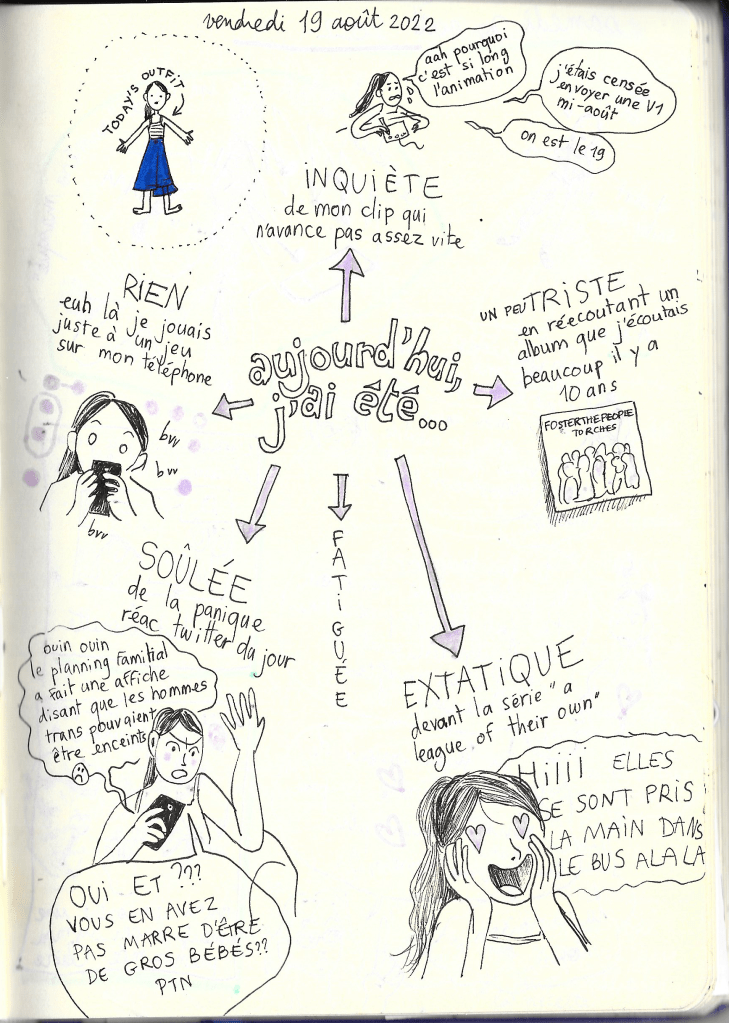 vendredi 19 août 2022
TODAY'S OUTFIT
aah pourquoi
c'est si long
l'animation
j'étais censée
envoyer une V1
mi-août
on est le 19
INQUIÈTE
de mon clip qui
n'avance pas assez vite
RIEN
euh là je jouais
juste à un jeu
sur mon téléphone
bvv
bvv
bvv
aujourd'hui,
j'ai été...
UN PEU TRISTE
en réécoutant un
album que j'écoutais
beaucoup il y a
10 ans
FOSTER THE PEOPLE
TORCHES
SOÛLÉE
de la panique
réac twitter du jour
ouin ouin
le planning familial
a fait une affiche
disant que les hommes
trans pouvaient
être enceints
OUI ET ???
VOUS EN AVEZ
PAS MARRE D'ÊTRE
DE GROS BÉBÉS??
PTN
FATIGUÉE
EXTATIQUE
devant la série "a
league of their own"
Hiiii ELLES
SE SONT PRIS
LA MAIN DANS
LE BUS ALALA